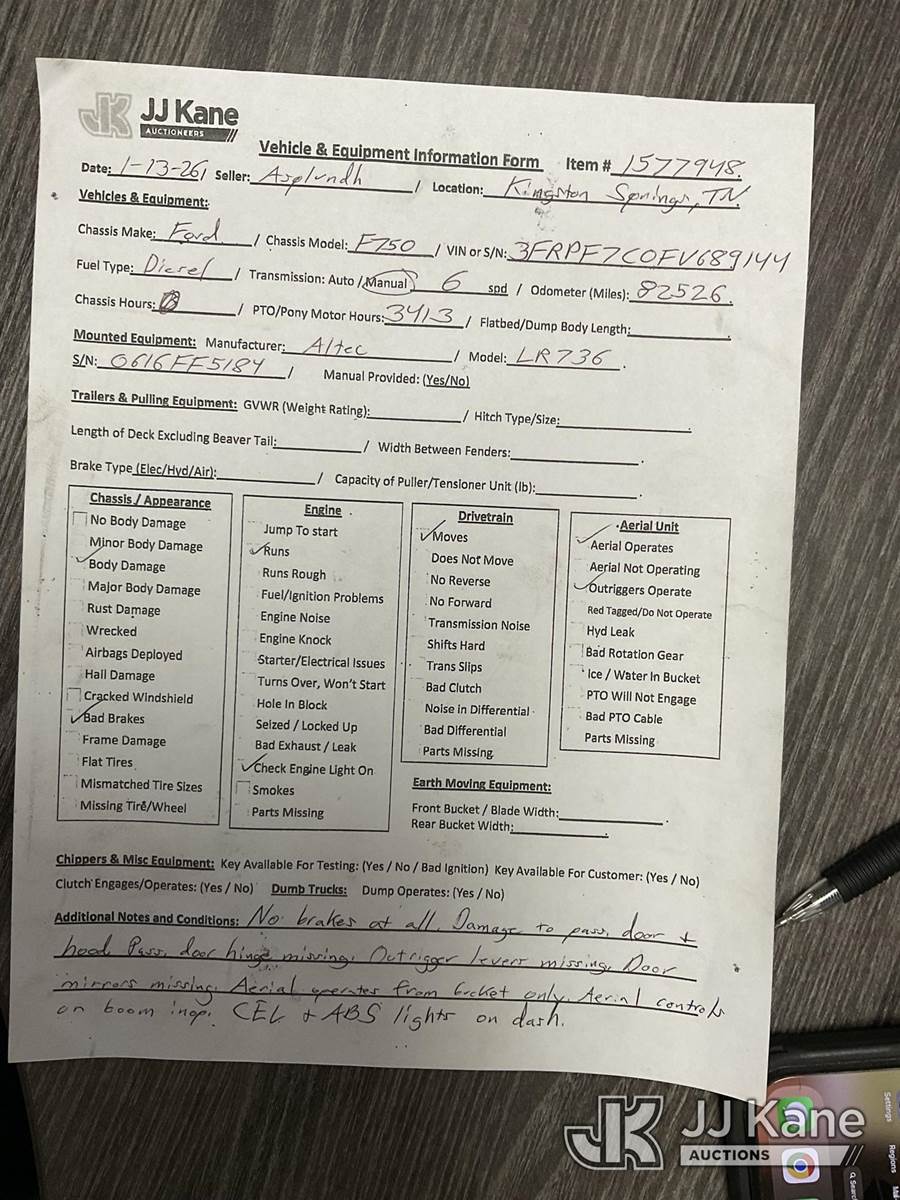 JJ Kane
AUCTIONEERS
Vehicle & Equipment Information Form Item # 1577948.
Date: 1-13-26 / Seller: Asplundh / Location: Kingston Springs, TN.
Vehicles & Equipment:
Chassis Make: Ford / Chassis Model: F750 / VIN or S/N: 3FRPF7C0FV689144
Fuel Type: Diesel / Transmission: Auto / Manual 6 spd / Odometer (Miles): 82526.
Chassis Hours: / PTO/Pony Motor Hours: 3413 / Flatbed/Dump Body Length: .
Mounted Equipment: Manufacturer: Altec / Model: LR736 .
S/N: 0616FF5184 / Manual Provided: (Yes/No)
Trailers & Pulling Equipment: GVWR (Weight Rating): / Hitch Type/Size: .
Length of Deck Excluding Beaver Tail: / Width Between Fenders: .
Brake Type (Elec/Hyd/Air): / Capacity of Puller/Tensioner Unit (lb): .
Chassis / Appearance
No Body Damage
Minor Body Damage
✓ Body Damage
Major Body Damage
Rust Damage
Wrecked
Airbags Deployed
Hail Damage
Cracked Windshield
✓ Bad Brakes
Frame Damage
Flat Tires
Mismatched Tire Sizes
Missing Tire/Wheel
Engine
Jump To start
✓ Runs
Runs Rough
Fuel/Ignition Problems
Engine Noise
Engine Knock
Starter/Electrical Issues
Turns Over, Won't Start
Hole In Block
Seized / Locked Up
Bad Exhaust / Leak
✓ Check Engine Light On
Smokes
Parts Missing
Drivetrain
✓ Moves
Does Not Move
No Reverse
No Forward
Transmission Noise
Shifts Hard
Trans Slips
Bad Clutch
Noise in Differential
Bad Differential
Parts Missing
Aerial Unit
✓ Aerial Operates
Aerial Not Operating
✓ Outriggers Operate
Red Tagged/Do Not Operate
Hyd Leak
Bad Rotation Gear
Ice / Water In Bucket
PTO Will Not Engage
Bad PTO Cable
Parts Missing
Earth Moving Equipment:
Front Bucket / Blade Width: .
Rear Bucket Width: .
Chippers & Misc Equipment: Key Available For Testing: (Yes / No / Bad Ignition) Key Available For Customer: (Yes / No)
Clutch Engages/Operates: (Yes / No) Dump Trucks: Dump Operates: (Yes / No)
Additional Notes and Conditions: No brakes at all. Damage to pass. door +
hood Pass. door hinge missing. Outrigger levers missing. Door
mirrors missing. Aerial operates from bucket only. Aerial controls
on boom inop. CEL + ABS lights on dash.
Settings
Regions
JJ Kane
AUCTIONS